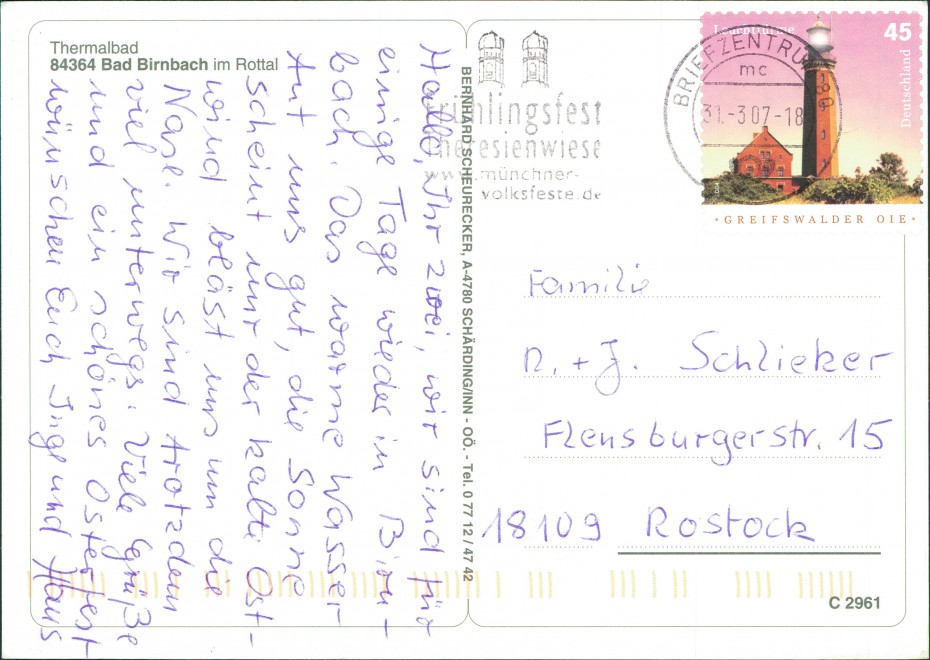 Thermalbad
84364 Bad Birnbach im Rottal
Hallo, Ihr zwei, wir sind für
einige Tage wieder in Birn-
bach. Das warme Wasser
tut uns gut, die Sonne
scheint nur der kalte Ost-
wind bläst uns um die
Nase. Wir sind trotzdem
viel unterwegs. Viele Grüße
und ein schönes Osterfest
wünschen Euch Inge und Hans
BERNHARD SCHEURECKER, A-4780 SCHÄRDING/INN - OÖ. - Tel. 0 77 12 / 47 42
Frühlingsfest
Theresienwiese
www.münchner-
volksfeste.de
BRIEFZENTRUM
mc
31.-3.07-18
Leuchttürme
45
Deutschland
GREIFSWALDER OIE
Familie
R. + J. Schlieker
Flensburgerstr. 15
18109 Rostock
C 2961